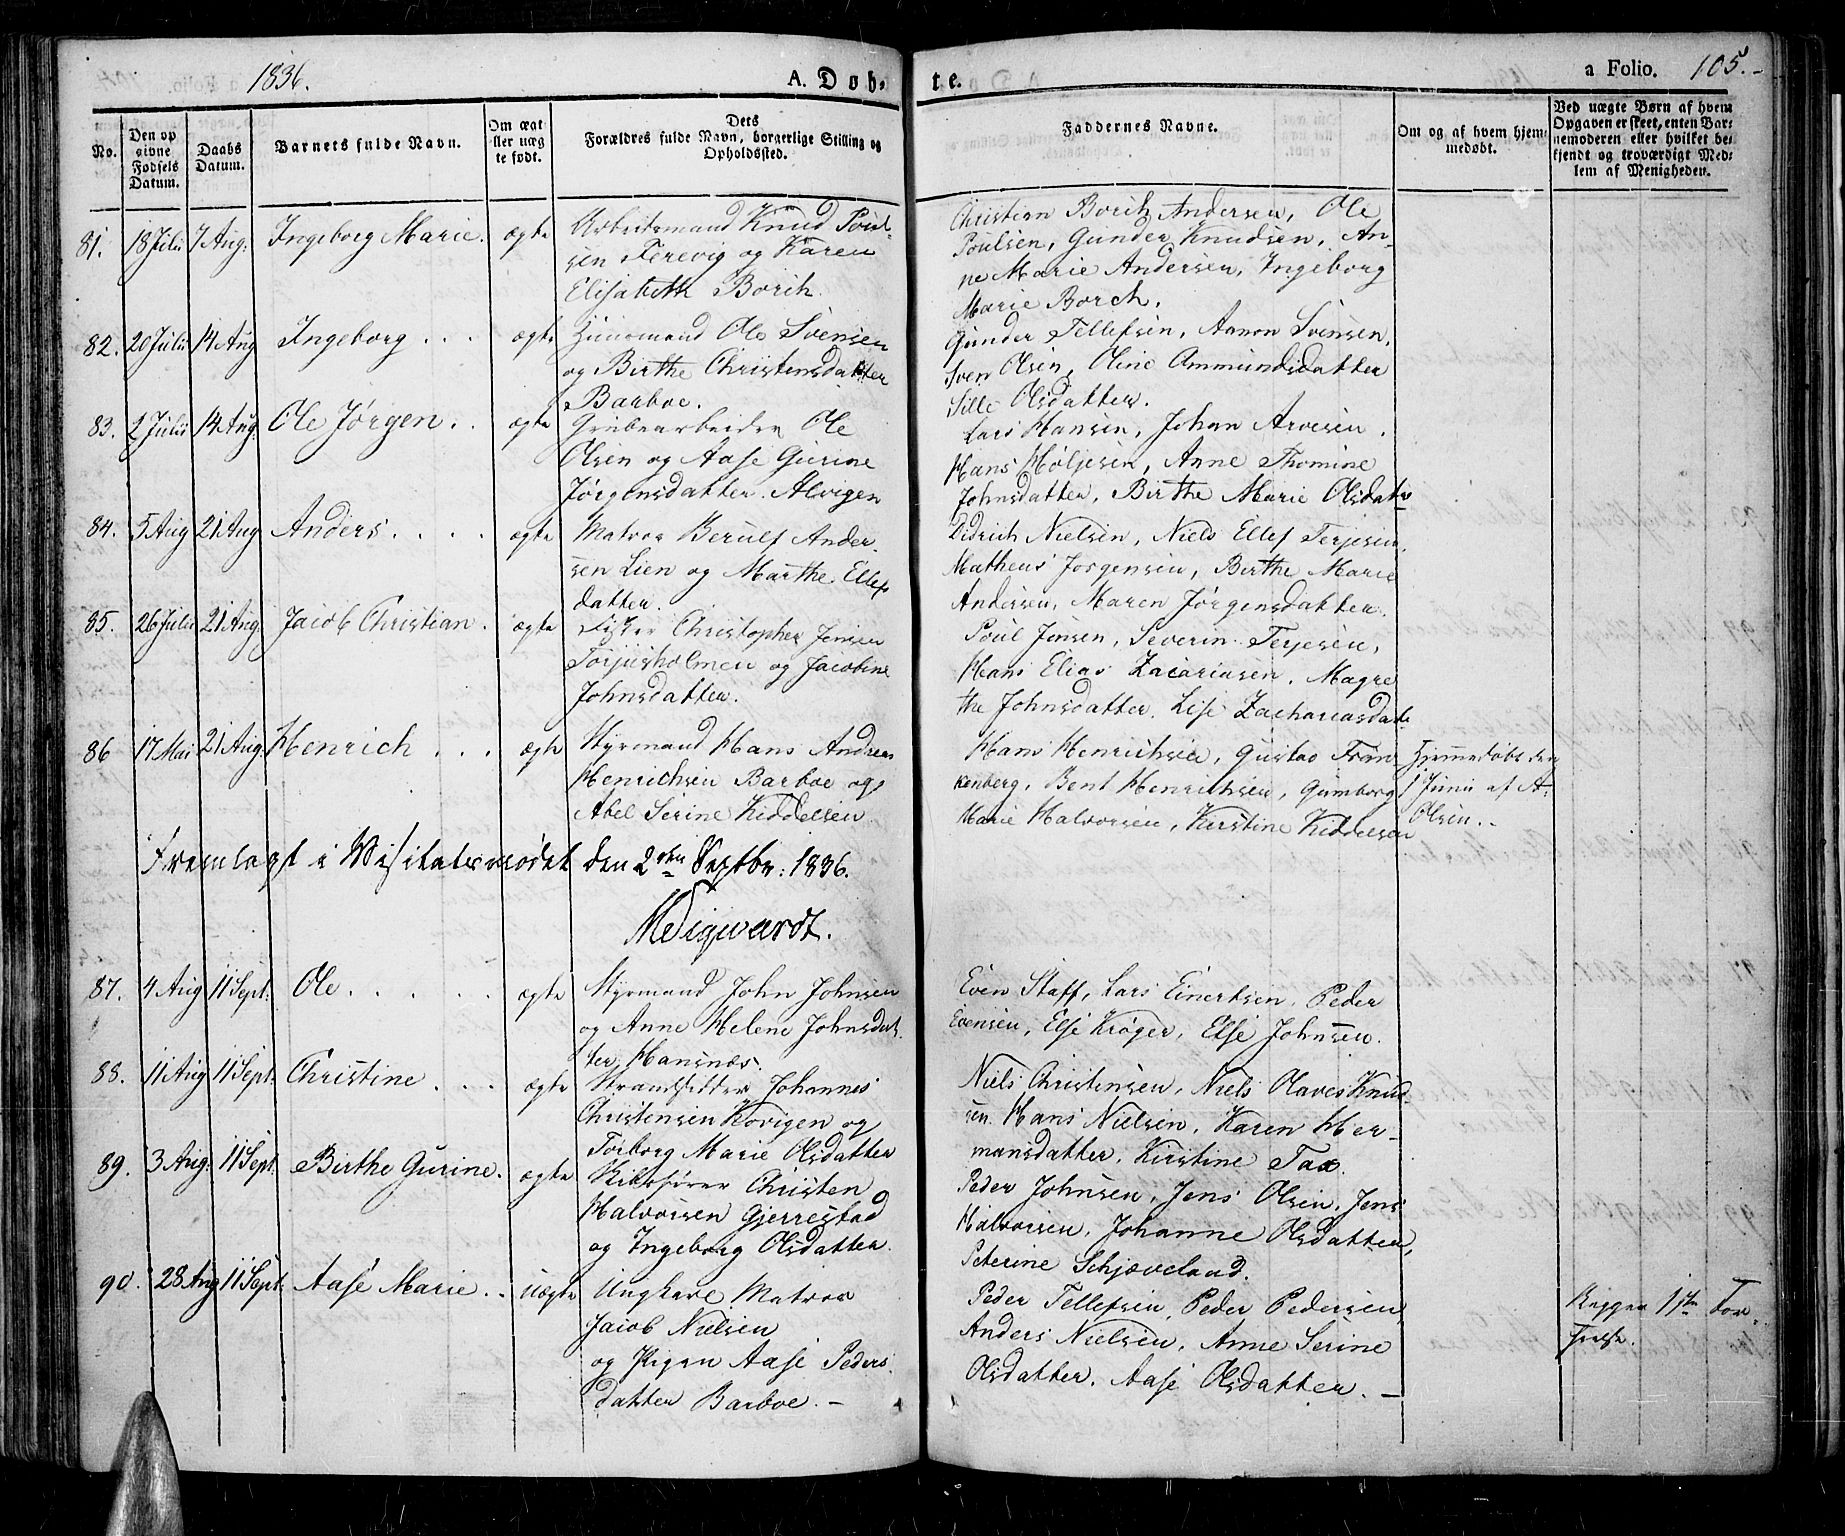 1836.
A. Døb-
te.
a Folio. 105.
No.
Den op
givne
Fødsels
Datum.
Daabs
Datum.
Barnets fulde Navn.
Om ægt
ller uæg
te født.
Dets
Forældres fulde Navn, borgerlige Stilling og
Opholdssted.
Faddernes Navne.
Om og af hvem hjem-
medøbt.
Ved uægte Børn af hvem
Opgaven er skeet, enten Bar-
nemoderen eller hvilket be-
kjendt og troværdigt Med-
lem af Menigheden.
81. 18 Julii 7 Aug: Ingeborg Marie. ægte
Arbeitsmand Knud Poul-
sen Ferevig og Karen
Elisabeth Borch.
Christian Borch Andersen, Ole
Poulsen, Gunder Knudsen, An-
ne Marie Andersen, Ingeborg
Marie Borch.
82. 20 Julii 14 Aug Ingeborg . . . ægte
Huusmand Ole Svensen
og Birthe Christensdatter
Barboe.
Gunder Tellefsen, Aanon Svensen,
Sven Olsen, Oline Ammundsdatter
Sille Olsdatter.
83. 2 Julii 14 Aug: Ole Jørgen. . ægte
Grubearbeider Ole
Olsen og Aase Gurine
Jørgensdatter. Alvigen
Lars Hansen, Johan Arvesen.
Hans Høljesen, Anne Thomine
Johnsdatter, Birthe Marie Olsdatr
84. 5 Aug 21 Aug Anders. . . . ægte
Matros Berulf Ander-
sen Lien og Marthe Ellefs
datter.
Didrich Nielsen, Niels Ellef Terjesen,
Matheus Jorgensen, Birthe Marie
Andersen, Maren Jørgensdatter.
85. 26 Julii 21 Aug. Jacob Christian. ægte
Fisker Christopher Jensen
Torjusholmen og Jacobine
Johnsdatter.
Poul Jensen, Severin Terjesen,
Hans Elias Zacariasen, Magre
the Johnsdatter, Lise Zachariasdat.
86 17 Mai 21 Aug. Henrich . . . ægte
Styrmand Hans Andreas
Henrichsen Barboe og
Abel Serine Kiddelsen
Hans Henrichsen, Gustav Fran
kenberg, Bent Henrichsen, Gumborg
Marie Halvorsen, Kirstine Kiddelsen
Hjemmedøbt den
1 Junii af A.
Olsen.
Fremlagt i Visitatsmødet den 2den Septbr: 1836.
MSigwardt.
87. 4 Aug 11 Sept: Ole. . . . . ægte
Styrmand John Johnsen
og Anne Helene Johnsdat
ter Hansnæs.
Even Staff, Lars Einertsen, Peder
Evensen, Else Krøger, Else Johnsen.
88. 11 Aug 11 Sept: Christine . . . ægte
Strandsitter Johannes
Christensen Kovigen og
Torborg Marie Olsdatter
Niels Christensen, Niels Olaves Knud
sen. Hans Nielsen, Karen Her-
mansdatter, Kirstine Tax.
89. 3 Aug. 11 Sept. Birthe Gurine. ægte
Skibsfører Christen
Halvorsen Gjerrestad
og Ingeborg Olsdatter.
Peder Johnsen, Jens Olsen, Jens
Halvorsen, Johanne Olsdatter,
Peterine Schjæveland.
90. 28 Aug 11 Sept: Aase Marie. . uægte
Ungkarl Matros
Jacob Nielsen
og Pigen Aase Peders
datter Barboe. —
Peder Tellefsen, Peder Pedersen,
Anders Nielsen, Anne Serine
Olsdatter, Aase Olsdatter. —
Begges 1ste For-